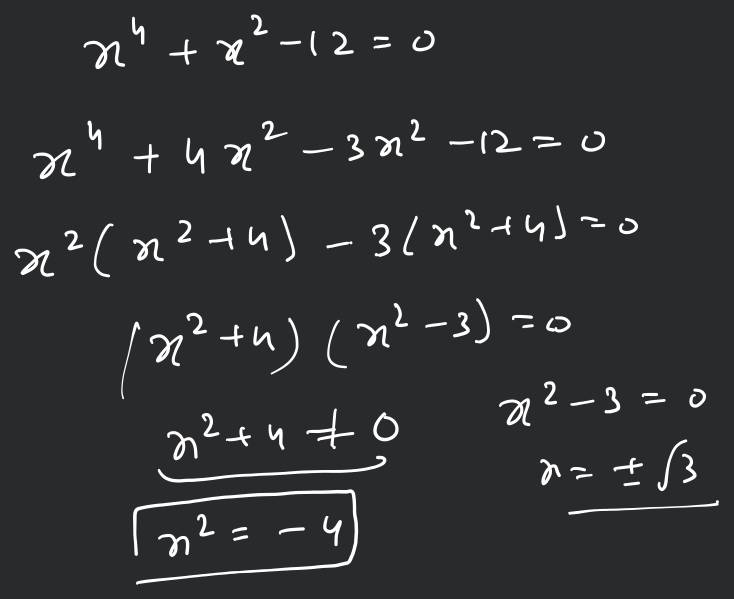 x⁴ + x² - 12 = 0
x⁴ + 4x² - 3x² - 12 = 0
x²(x² + 4) - 3(x² + 4) = 0
(x² + 4)(x² - 3) = 0
x² + 4 ≠ 0
x² = -4
x² - 3 = 0
x = ± √3